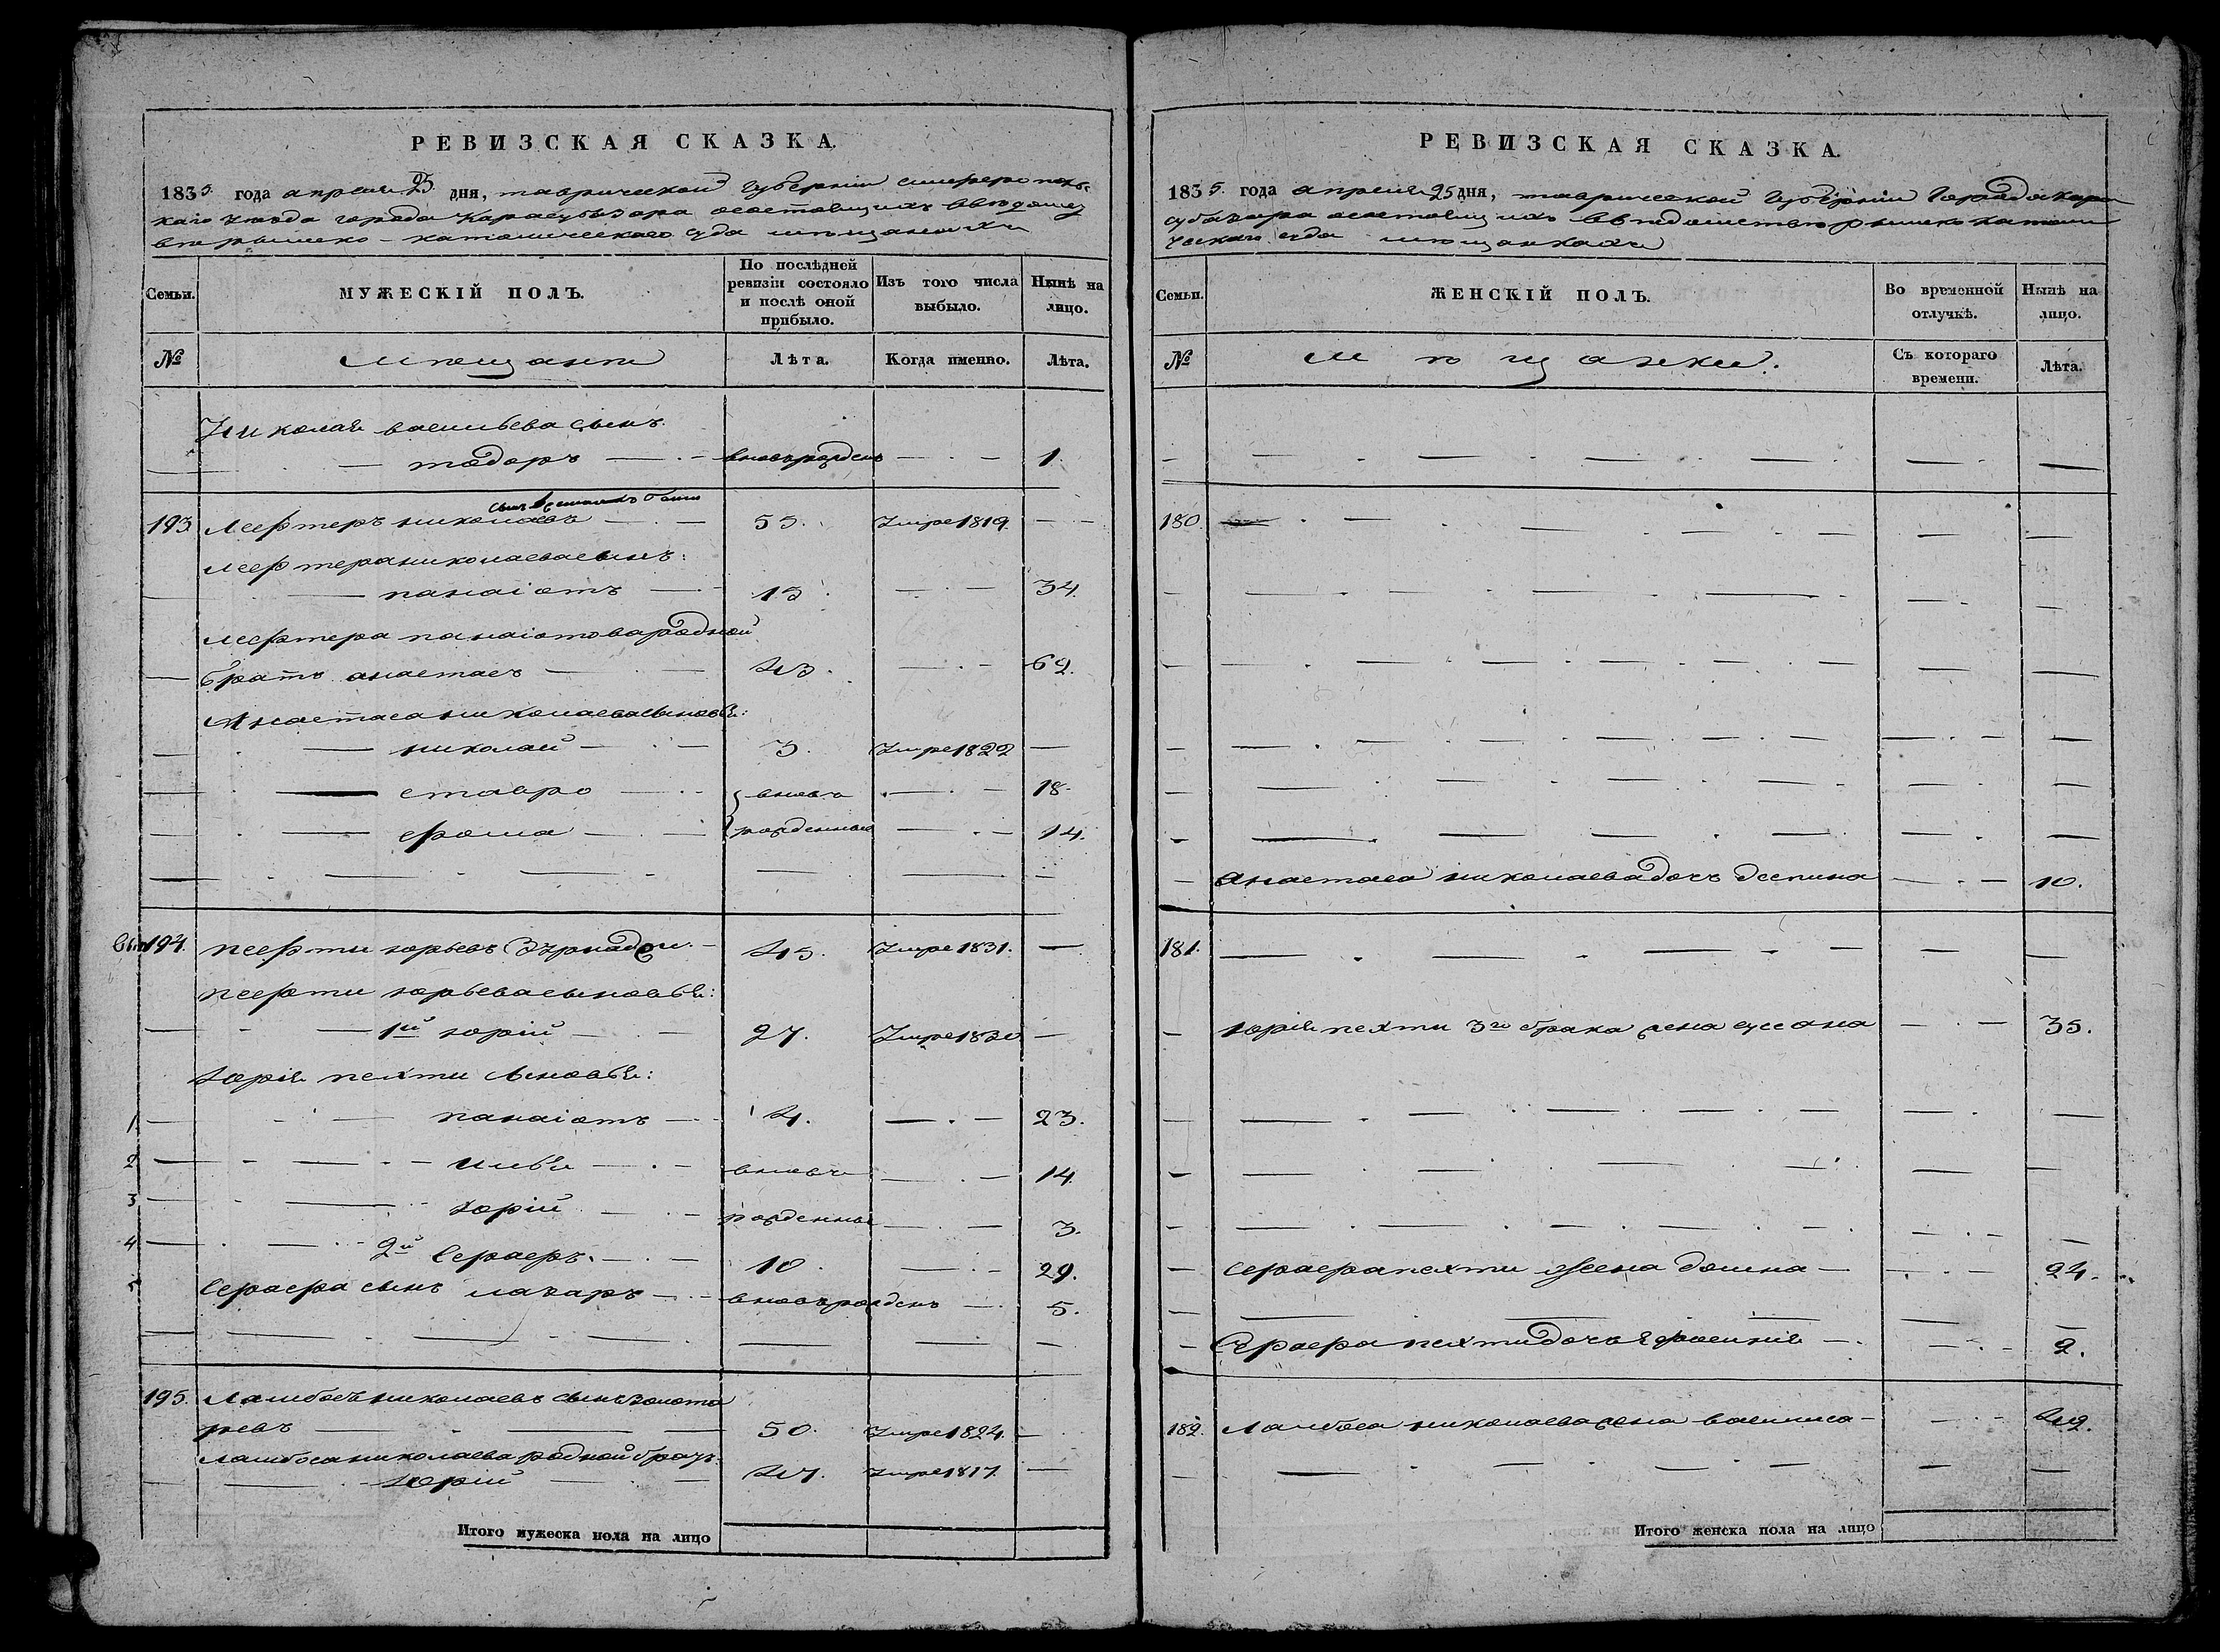 РЕВИЗСКАЯ СКАЗКА.
1835. года апреля 25 дня, таврической губернии симферополь-
скаго уезда города Карасубазара состоящихъ в ведом
ве римско-католическаго суда мещанехъ
Семьи.
МУЖЕСКІЙ ПОЛЪ.
По послѣдней ревизіи состояло и послѣ оной прибыло.
Изъ того числа выбыло.
Нынѣ на лицо.
№
мѣщанѣ
Лѣта.
Когда именно.
Лѣта.
Николая васильева сынъ
тодоръ вновърожденъ 1.
193. Лефтеръ николаевъ сынъ 55. Умре 1819.
лефтера николаева сынъ:
панаіотъ 15. 34.
лефтера панаіотова родной
братъ анастасъ 43. 62.
Анастаса николаева сыновья:
николай 3. Умре 1822
ставро вновь 18.
фома рожденные 14.
194. пефти юрьевъ 45. Умре 1831.
пефти юрьева сыновья:
1й юрій 27. Умре 1830
юрія пехти сыновья:
1 панаіотъ 4. 23.
2 илья вновь 14.
3 юрій рожденные 3.
4 2й Серафръ 10. 29.
5 Серафра сынъ лазаръ вновърожденъ 5.
195. Ламбосъ николаевъ сынъ золота
ревъ 50. Умре 1824.
ламбоса николаева родной братъ
юрій 47. Умре 1817.
Итого мужеска пола на лицо
РЕВИЗСКАЯ СКАЗКА.
1835. года апреля 25 дня, таврической губерніи города кара
субазара состоящихъ въ ведомстве римско катол
ческаго суда мещанкахъ
Семьи.
ЖЕНСКІЙ ПОЛЪ.
Во временной отлучкѣ.
Нынѣ на лицо.
№
мѣщанки.
Съ котораго времени.
Лѣта.
180.
анастаса николаева дочъ деспина 10.
181.
юрія пехти 3го брака жена сусана 35.
серафра пехти жена домна 24.
Серафра пехти дочь 2.
182. Ламбоса николаева жена василиса 42.
Итого женска пола на лицо